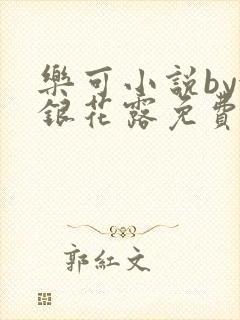 樂可小說by
銀花露免費
郭紅文